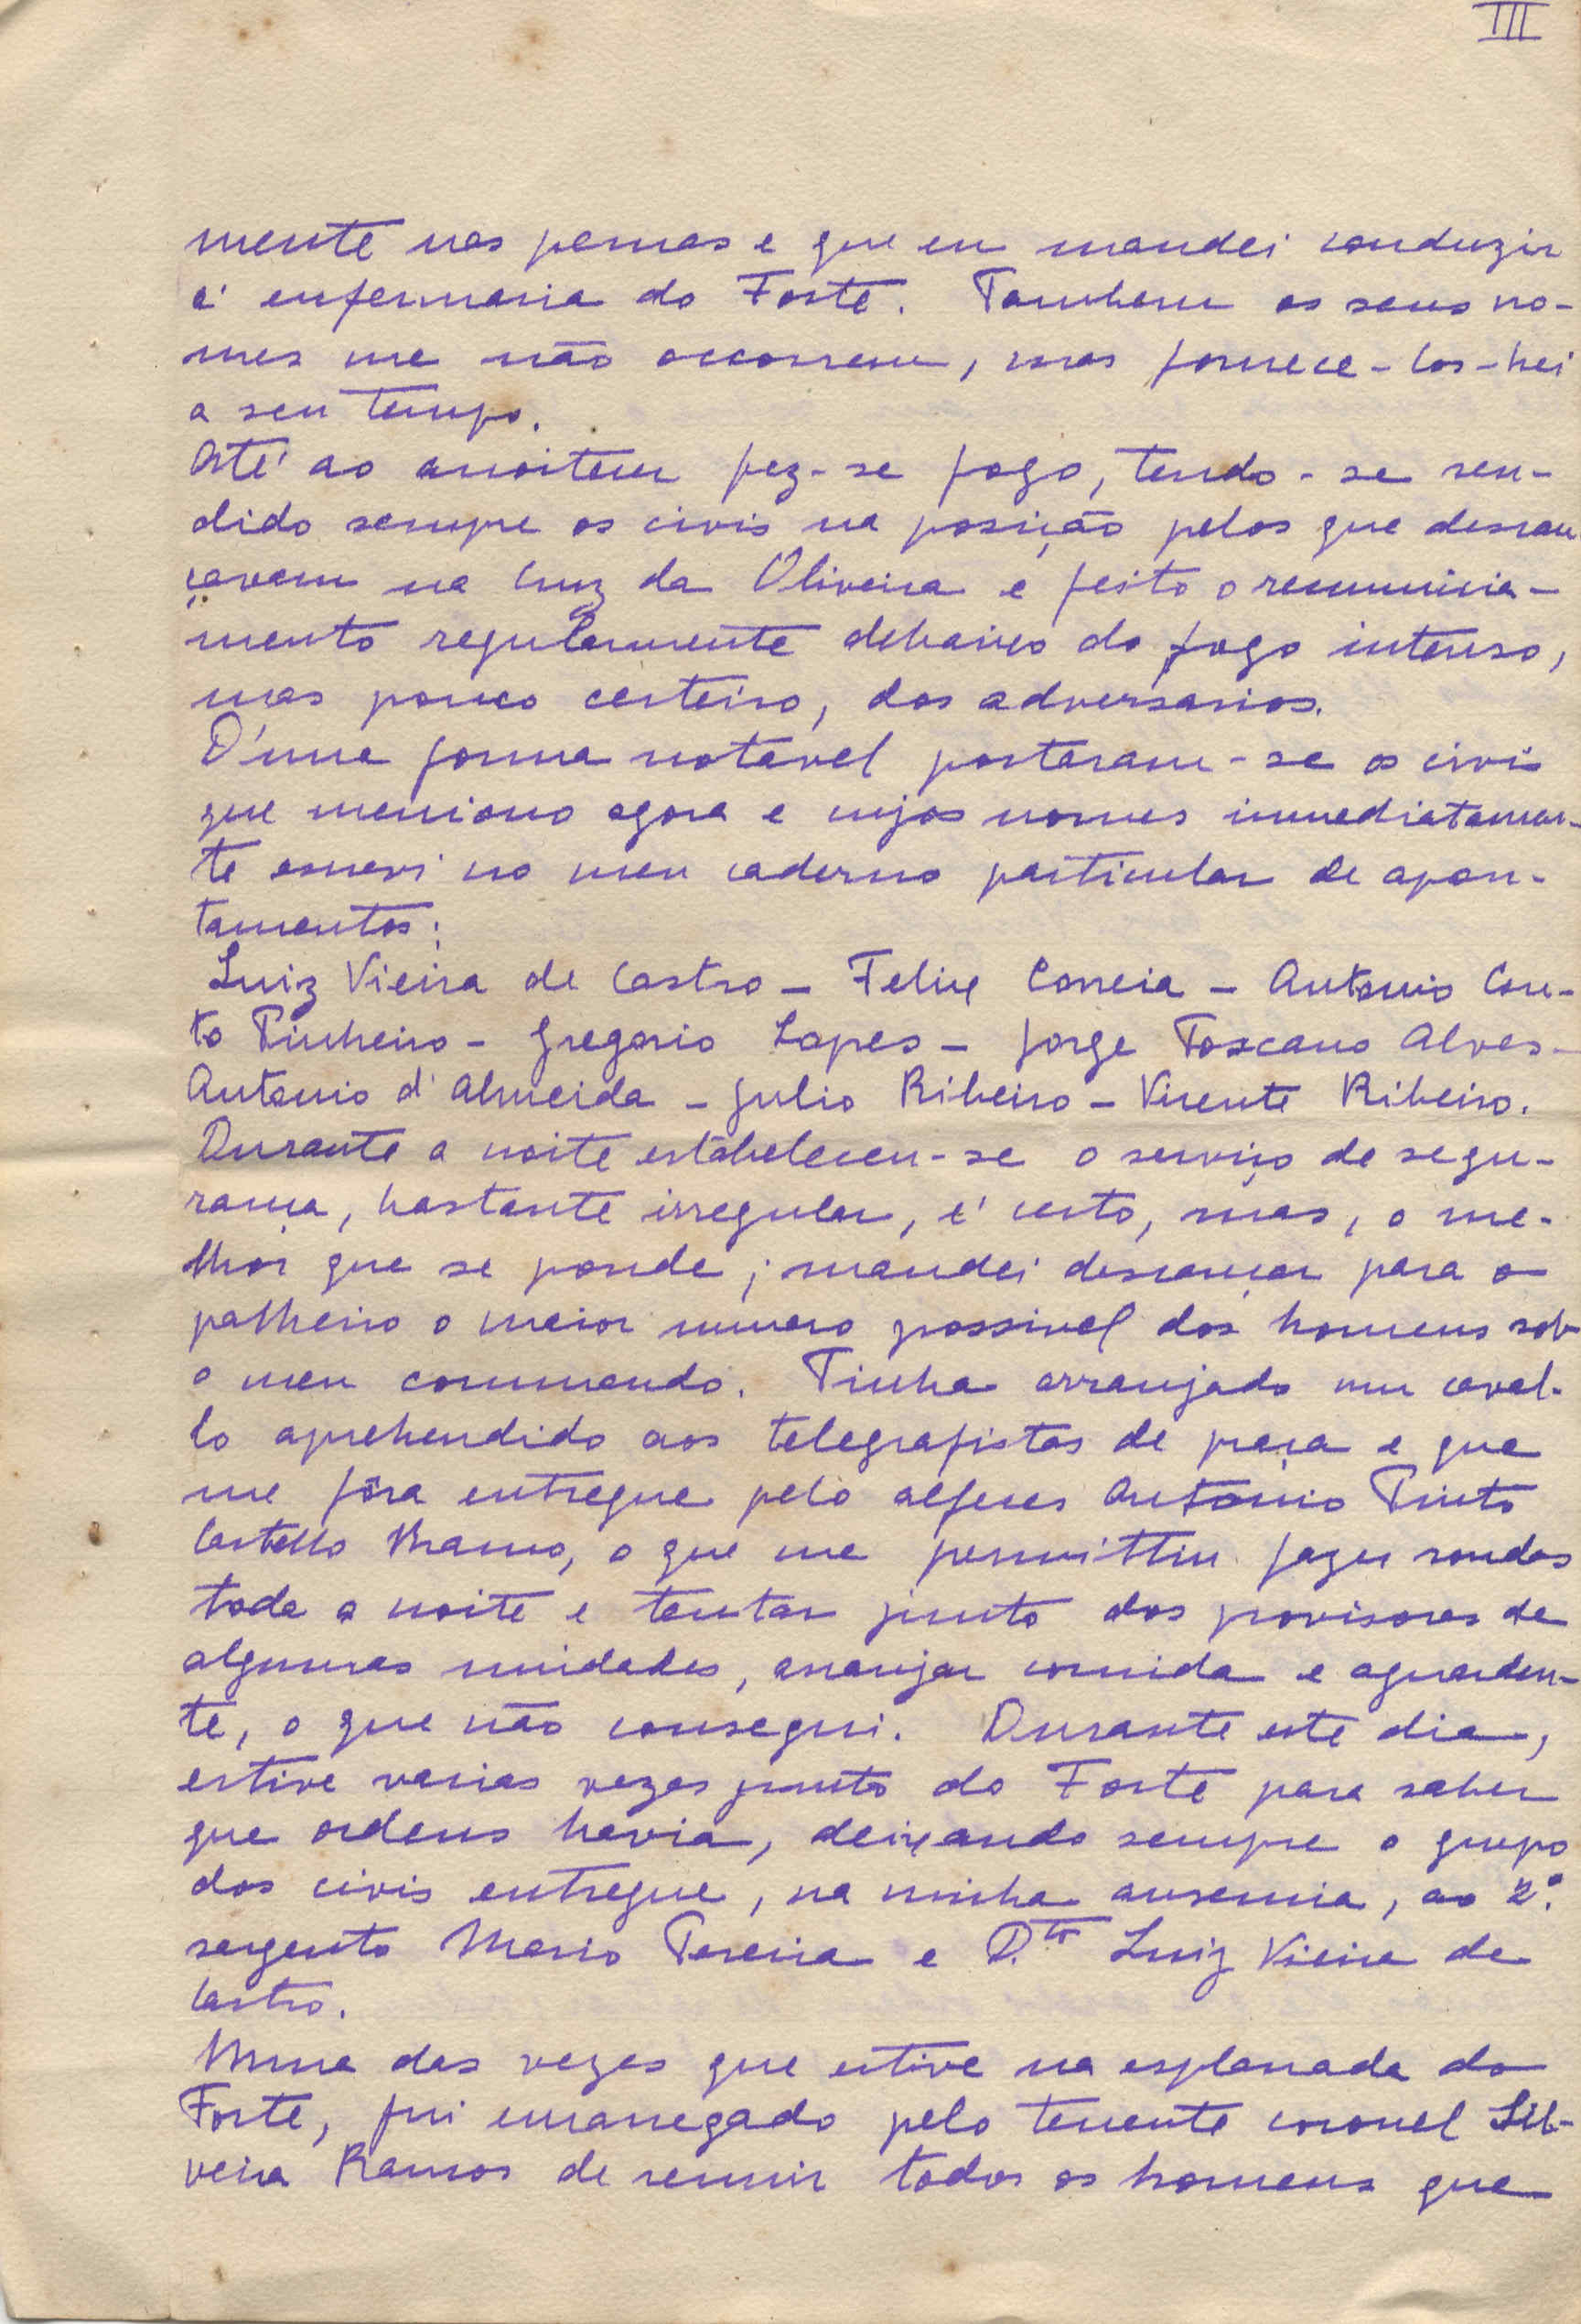 III
mente nas pernas e que eu mandei conduzir
á enfermaria do Forte. Tambem os seus no-
mes me não occorrem, mas fornece-los-hei
a seu tempo.
Até ao anoitecer fez-se fogo, tendo-se ren-
dido sempre os civis na posição pelos que descan
çavam na Cruz da Oliveira e feito o remunicia-
mento regularmente debaixo do fogo intenso,
mas pouco certeiro, dos adversarios.
D'uma forma notavel portaram-se os civis
que menciono agora e cujos nomes immediatamen-
te escrevi no meu caderno particular de apon-
tamentos:
Luiz Vieira de Castro - Felix Correia - Antonio Cou-
to Pinheiro - Gregorio Lopes - Jorge Toscano Alves -
Antonio d'Almeida - Julio Ribeiro - Vicente Ribeiro.
Durante a noite estabeleceu-se o serviço de segu-
rança, bastante irregular, é certo, mas, o me-
lhor que se poude; mandei descançar para o
palheiro o maior numero possivel dos homens sob
o meu commando. Tinha arranjado um caval-
lo aprehendido aos telegrafistas de praça e que
me fôra entregue pelo alferes Antonio Pinto
Castello Branco, o que me permittiu fazer rondas
toda a noite e tentar junto dos provisores de
algumas unidades, arranjar comida e aguarden-
te, o que não consegui. Durante este dia,
estive varias vezes junto do Forte para saber
que ordens havia, deixando sempre o grupo
dos civis entregue, na minha ausencia, ao 2º.
sargento Mario Pereira e D.tor Luiz Vieira de
Castro.
Numa das vezes que estive na esplanada do
Forte, fui encarregado pelo tenente coronel Sil-
veira Ramos de reunir todos os homens que